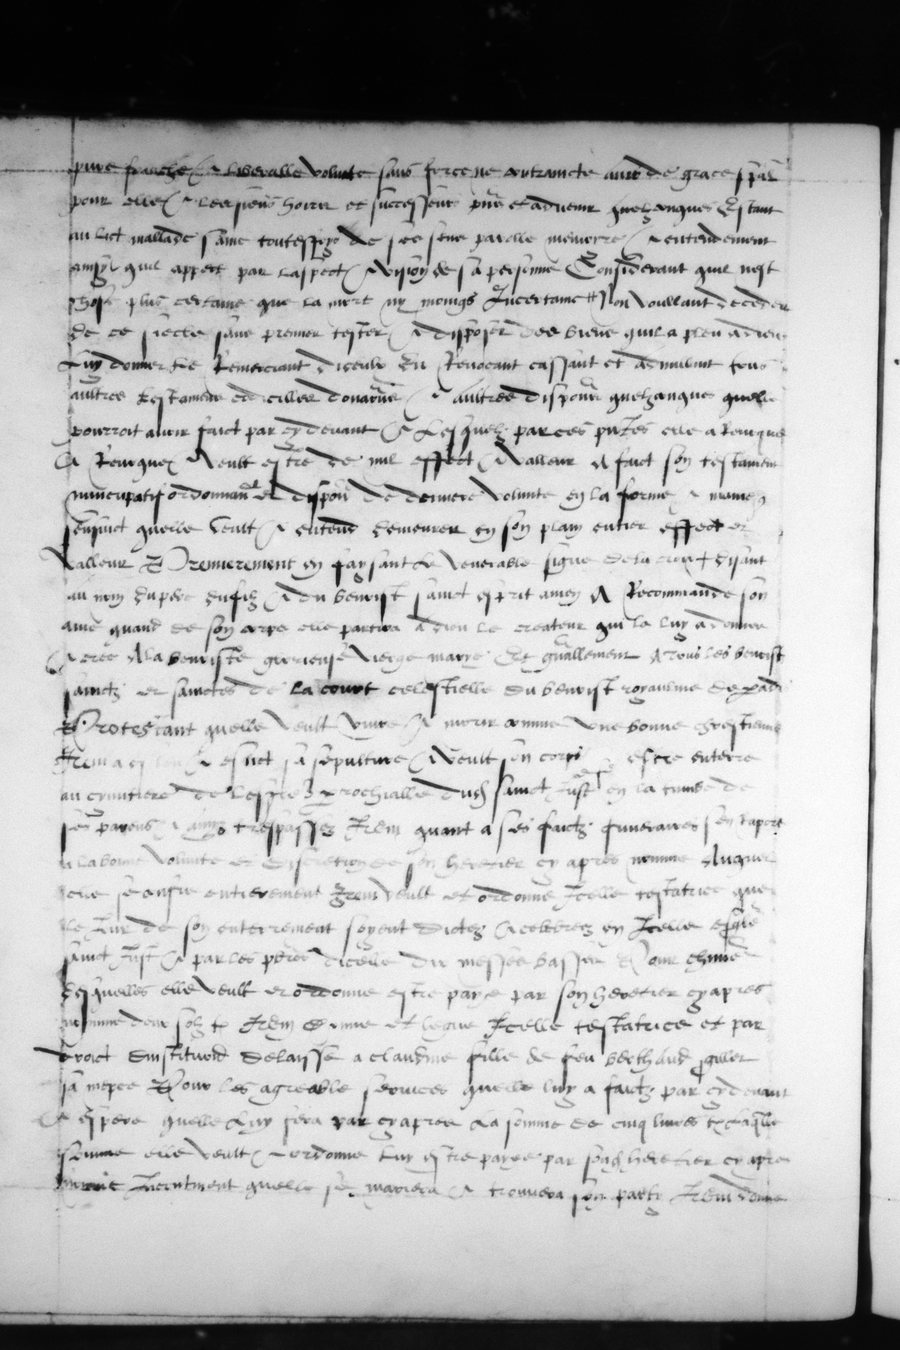 pure franche & liberalle volunte sans force ne contraincte ains de grace spāl
pour elle & les siens hoirs et successeurs pñs et advenir quelzonques Estant
au lict mallade saine toutesfoys de ses sens parolle memoyre & entendement
ainsy quil appert par laspect & vision de sa personne Considerant quil nest
chose plus certaine que la mort ny moings Incertaine # Non voullant deceder
de ce siecle sans premier tester & disposer des biens quil a pleu a dieu
luy donner le Remerciant diceulx En Revocant cassant et adnullant tous
aultres testamens codicilles donãons & aultres disponõns quelzonques quelle
pourroit avoir faict par cy devant & Lesquelz par ces pñtes elle a Revoque
& Revoque veult estre de nul effect & valleur A faict son testament
nuncupatif ordonnan et dispõn de derniere volunte en la forme & maniere
sensuict quelle veult & entend demeurer en son plain entier effect et
valleur Premierement en faysant le venerable signe de la croix + disant
au nom du pere du filz & du benoist sainct esprit amen A Recommande son
ame quand de son corps elle partira a dieu le createur qui la luy a donnee
& cree A la benoiste glorieuse vierge marye Et gñallement A tous les benoist
sainctz et sainctes de la court celestielle du benoist royaulme de parad
Protestant quelle veult vivre & morir comme une bonne chrestienne
Item a esleu & eslict sa sepulture & veult son corps estre enterre
au cymintiere de lesglise parochialle dud sainct Just en la tumbe de
ses parens & amys trespassez Item quant a ses faictz funeraires sen rapporte
a la bonne volunte et discretion de son heretier cy apres nomme Auquel
elle se confie entierement Item veult et ordonne Icelle testatrice que
le Jour de son enterrement soyent dictes & celebrez en Icelle esglise
sainct Just & par les pbrēs dicelle dix messes basses Pour chune
desquelles elle veult et ordonne estre paye par son heretier cy apres
nomme deux solz tz Item donne et legue Icelle testatrice et par
droict dinstitũon delaisse a claudine fille de feu berthaud
sa niepce Pour les agreable services quelle luy a faictz par cy devant
& espere quelle luy fera par cy apres La somme de cinq livres tz Laqlle
somme elle veult & ordonne luy estre payee par sond heretier cy apres
nomme Incontinent quelle se mariera & trouvera son party Item donne